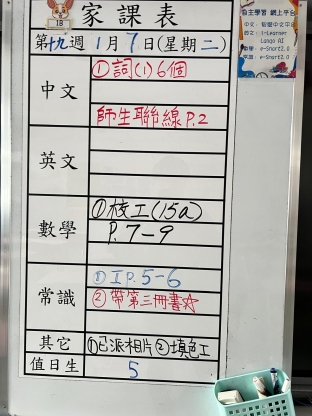 家課表
18
第十九週 1月7日(星期二)
中文
①詞(1)6個
師生聯線 P.2
英文
數學
①校工(15a)
P.7-9
常識
①工P.5-6
②帶第三冊書☆
其它
①已派相片②填色工
值日生
5
自主學習 網上平台
中文:智愛中文平台
英文:i-Learner
Longo AI
數學:e-Smart2.0
常識:e-Smart2.0